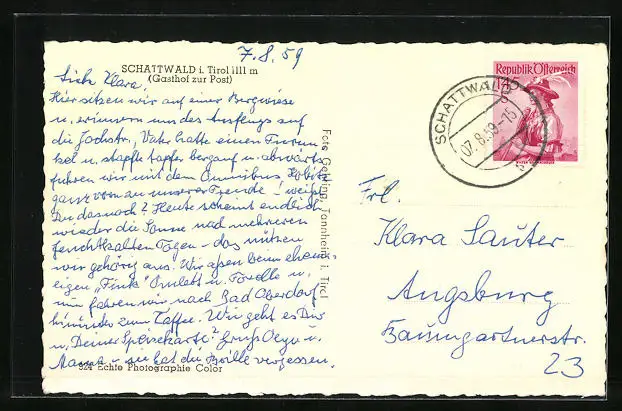 7.8.59
SCHATTWALD i. Tirol 1111 m
(Gasthof zur Post)
Liebe Klara!
Hier sitzen wir auf einer Bergwiese
u. erinnern uns des Ausflugs auf
die Jochstr., Vater hatte einen Furun-
kel u. stapfte tapfer bergauf u. abwärts
fuhren wir mit dem Omnibus
ganz vorn zu unserer Freude! Weißt
Du das noch? Heute scheint endlich
wieder die Sonne nach mehreren
feuchtkalten Tagen - das nützen
wir gehörig aus. Wir aßen beim ehema-
ligen "Fink" Omlett u. Forelle u.
nun fahren wir nach Bad Oberdorf
hinunter zum Kaffee. Wie geht es Dir
u. Deiner Gruß Olga u.
Mama - sie hat die Brille vergessen.
524 Echte Photographie Color
Tannheim i. Tirol
Republik Österreich
1.45
SCHATTWALD
07.8.59-15
Frl.
Klara Sauter
Augsburg
Baumgartnerstr.
23